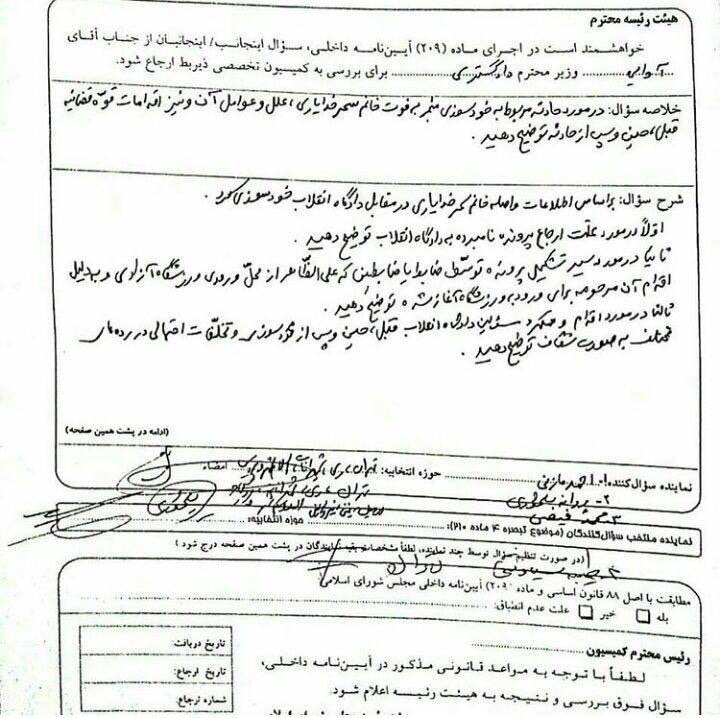 هیئت رئیسه محترم
خواهشمند است در اجرای ماده (۲۰۹) آیین‌نامه داخلی، سؤال اینجانب/ اینجانبان از جناب آقای
آوایی وزیر محترم دادگستری برای بررسی به کمیسیون تخصصی ذیربط ارجاع شود.
خلاصه سؤال: در مورد حادثه مربوط به خودسوزی منجر به فوت خانم سحر خدایاری، علل و عوامل آن و نیز اقدامات قوّه قضائیه
قبل، حین و پس از حادثه توضیح دهید.
شرح سؤال: براساس اطلاعات واصله خانم سحر خدایاری در مقابل دادگاه انقلاب خودسوزی کرد.
اولاً در مورد علّت ارجاع پرونده نامبرده به دادگاه انقلاب توضیح دهید.
ثانیاً در مورد سیر تشکیل پرونده توسّط ضابط یا ضابطین که علی‌الظّاهر از محلّ ورودی ورزشگاه آزادی و به دلیل
اقدام آن مرحومه برای ورود به ورزشگاه آغاز شده توضیح دهید.
ثالثاً در مورد اقدام و عملکرد مسئولین دادگاه انقلاب قبل، حین و پس از خودسوزی و تخلّفات احتمالی در رده‌های
مختلف به صورت شفاف توضیح دهید.
(ادامه در پشت همین صفحه)
نماینده سؤال‌کننده: ۱- احمد مازنی حوزه انتخابیه: تهران، ری، شمیرانات امضاء
۲- پروانه سلحشوری تهران، ری، شمیرانات
۳- محمد فیضی
نماینده منتخب سؤال‌کنندگان (موضوع تبصره ۴ ماده ۲۱۰): حوزه انتخابیه:
(در صورت تنظیم سؤال توسط چند نماینده، لطفاً مشخصات بقیه نمایندگان در پشت همین صفحه درج شود)
مطابقت با اصل ۸۸ قانون اساسی و ماده (۲۰۹) آیین‌نامه داخلی مجلس شورای اسلامی:
بله خیر علت عدم انطباق:
رئیس محترم کمیسیون
لطفاً با توجه به مواعد قانونی مذکور در آیین‌نامه داخلی،
سؤال فوق بررسی و نتیجه به هیئت رئیسه اعلام شود.
تاریخ دریافت:
تاریخ ارجاع:
شماره ارجاع: